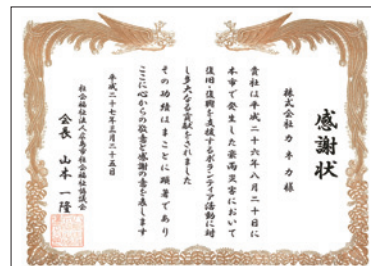 感謝状
株式会社カネカ様
貴社は平成二十六年八月二十日に
本市で発生した豪雨災害において
復旧・復興を支援するボランティア活動に対
し多大なる貢献をされました
その功績はまことに顕著であり
ここに心からの敬意と感謝の意を表します
平成二十七年三月二十五日
社会福祉法人広島市社会福祉協議会
会長 山本 一隆